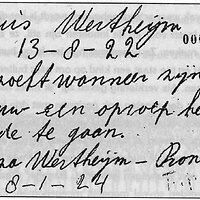 uis Wertheijm
13-8-22
000
zoekt wanneer zijn
uw een oproep he
de te gaan.
aa Wertheijm - Ron
8-1-24